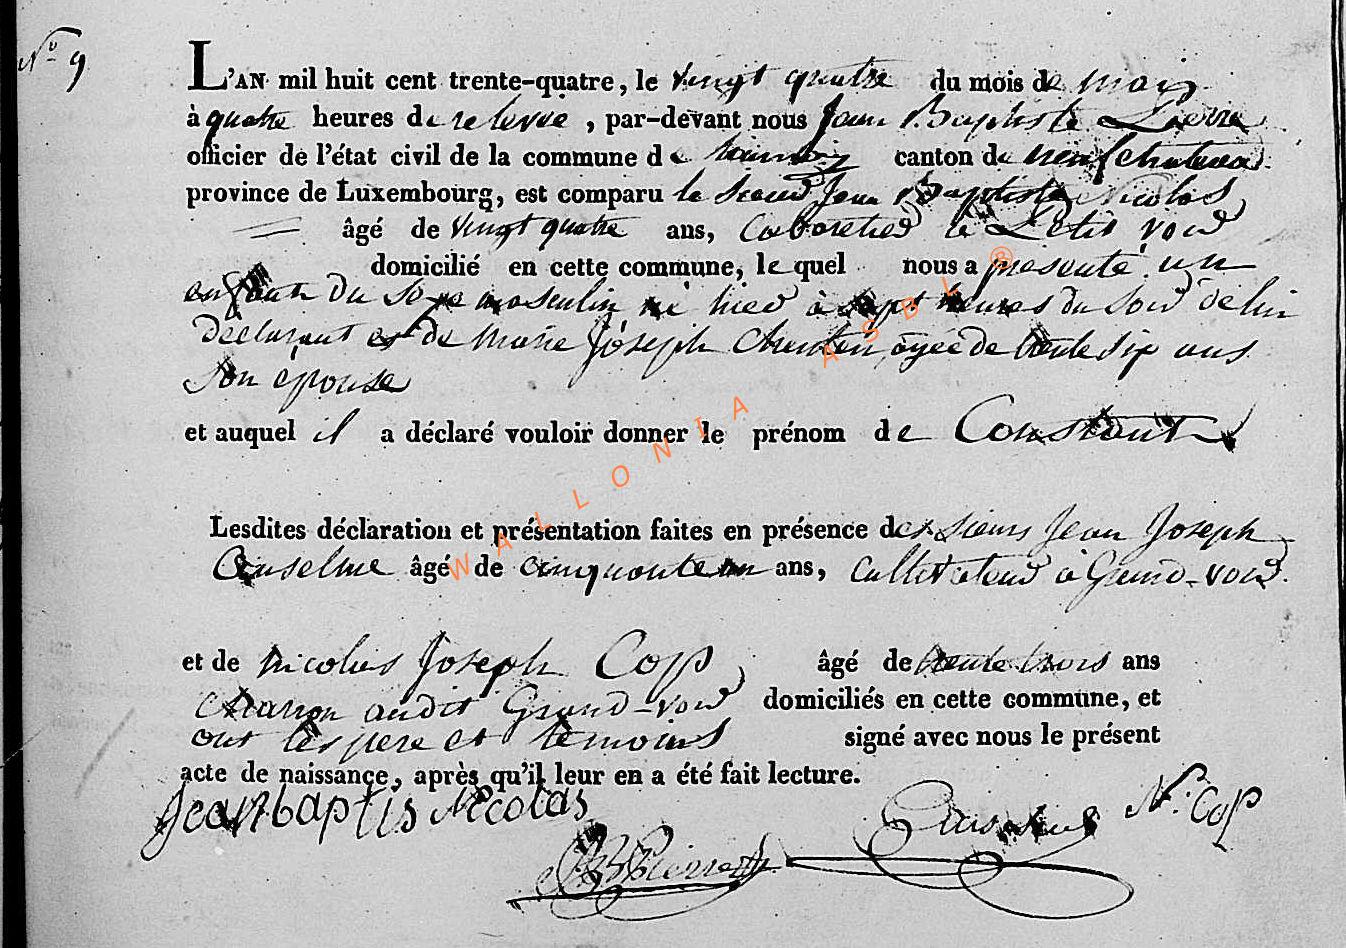 N° 9
L'AN mil huit cent trente-quatre, le vingt quatre du mois de mars
à quatre heures de relevée, par-devant nous Jean Baptiste Pierre
officier de l'état civil de la commune de canton de neufchateau
province de Luxembourg, est comparu le sieur Jean Baptiste Nicolas
âgé de vingt quatre ans, cabaretier à Petit voir
domicilié en cette commune, lequel nous a presenté un
enfant du sexe masculin né hier à sept heures du soir de lui
declarant et de Marie Joseph agée de trente six ans
son épouse
et auquel il a déclaré vouloir donner le prénom de Constant
Lesdites déclaration et présentation faites en présence des sieurs Jean Joseph
Anselme âgé de cinquante un ans, cultivateur à Grand-voir.
et de Nicolas Joseph Cop âgé de trente trois ans
charron audit Grand-voir domiciliés en cette commune, et
ont les pere et temoins signé avec nous le présent
acte de naissance, après qu'il leur en a été fait lecture.
Jean baptis Nicolas N. Cop
WALLONIA ASBL ®